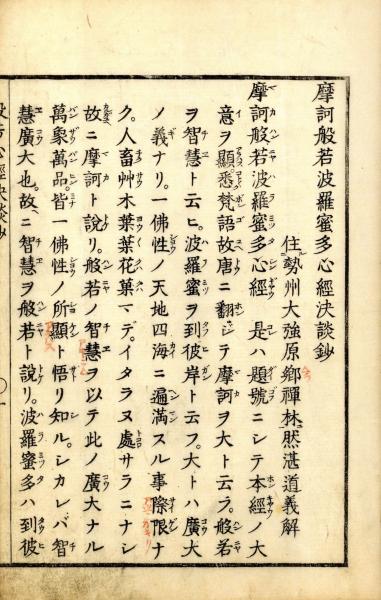 摩訶般若波羅蜜多心經決談鈔
住勢州大強原鄉禪林然湛道義解
摩訶般若波羅蜜多心經 是ハ題號ニシテ本經ノ大
意ヲ顯悉梵語故唐ニ翻シテ摩訶ヲ大ト云ラ。般若
ヲ智慧ト云ヒ。波羅蜜ヲ到彼岸ト云フ。大トハ廣大
ノ義ナリ。一佛性ノ天地四海ニ遍滿スル事際限ナ
ク。人畜艸木葉葉花菓マデ。イタラヌ處サラニナシ
故ニ摩訶ト說リ。般若ノ智慧ヲ以テ此ノ廣大ナル
萬象萬品。皆一佛性ノ所顯ト悟リ知ル。シカレバ智
慧廣大也。故ニ智慧ヲ般若ト說リ。波羅蜜多ハ到彼
般若心經決談鈔